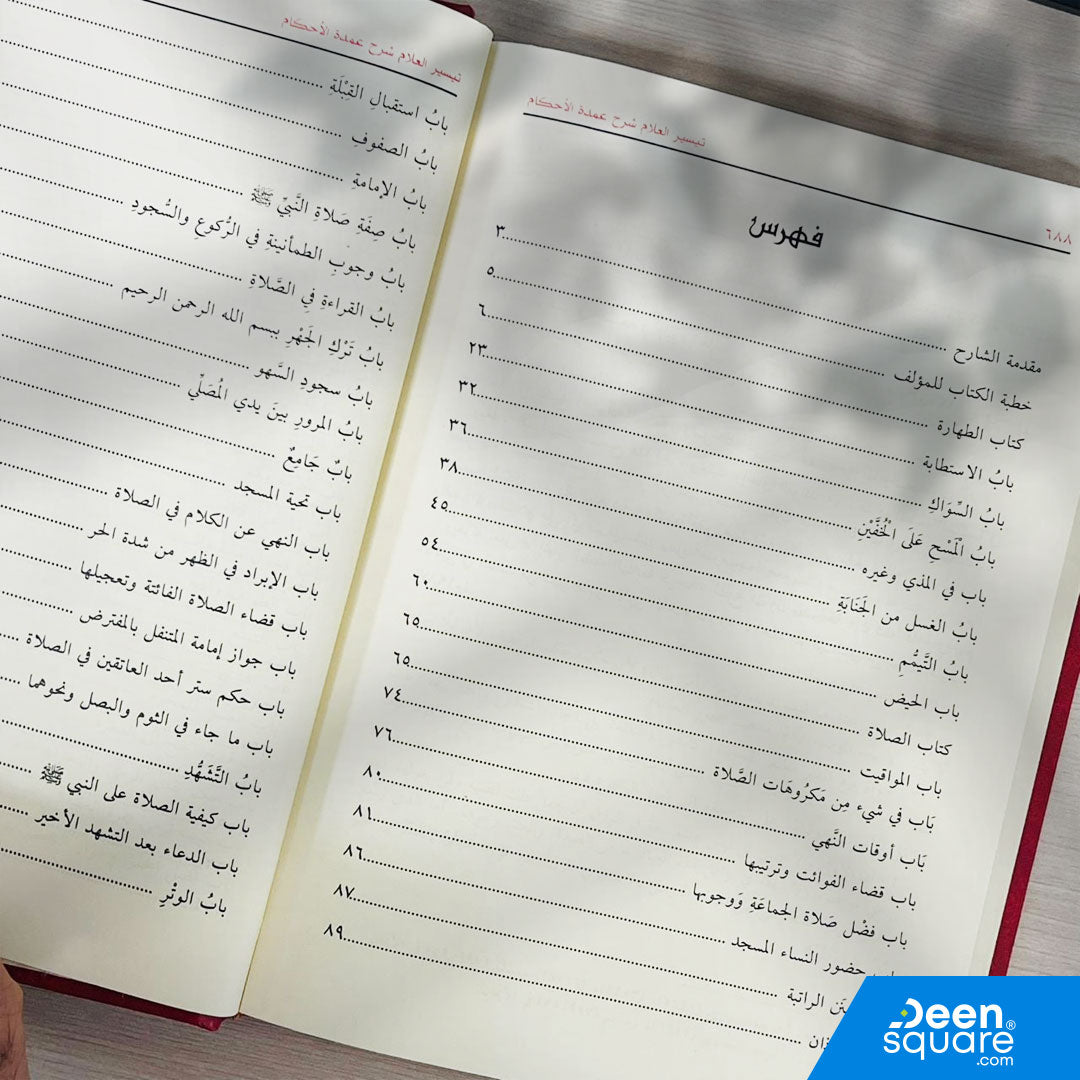 تيسير العلام شرح عمدة الأحكام ٦٨٨
فهرس
مقدمة الشارح ... ٣
خطبة الكتاب للمؤلف ... ٥
كتاب الطهارة ... ٦
بابُ الاستطابة ... ٢٣
بابُ السِّوَاكِ ... ٣٢
بابُ الْمَسْحِ عَلَى الْخُفَّيْنِ ... ٣٦
باب في المذي وغيره ... ٣٨
بابُ الغسل من الجَنَابَةِ ... ٤٥
بابُ التَّيَمُّمِ ... ٥٤
باب الحيض ... ٦٠
كتاب الصلاة ... ٦٥
باب المواقيت ... ٦٥
بَاب في شيء مِن مَكرُوهَات الصَّلاة ... ٧٤
بَاب أوقات النَّهي ... ٧٦
باب قضاء الفوائت وترتيبها ... ٨٠
باب فضْل صَلاة الجماعَةِ وَوجوبها ... ٨١
حضور النساء المسجد ... ٨٦
الراتبة ... ٨٧
... ٨٩
تيسير العلام شرح عمدة الأحكام
بابُ استقبالِ القِبْلَةِ
بابُ الصفوفِ
بابُ الإمامةِ
بابُ صِفَةِ صَلاةِ النَّبِيِّ ﷺ
بابُ وجوبِ الطمأنينةِ في الرُّكوعِ والسُّجودِ
بابُ القراءةِ فِي الصَّلاةِ
بابُ تَرْكِ الجَهْرِ ببسم الله الرحمن الرحيم
بابُ سجودِ السَّهو
بابُ المرورِ بينَ يدي المُصَلِّي
بابٌ جَامِعٌ
باب تحية المسجد
باب النهي عن الكلام في الصلاة
باب الإبراد في الظهر من شدة الحر
باب قضاء الصلاة الفائتة وتعجيلها
باب جواز إمامة المتنفل بالمفترض
باب حكم ستر أحد العاتقين في الصلاة
باب ما جاء في الثوم والبصل ونحوهما
بابُ التَّشَهُّدِ
باب كيفية الصلاة على النبي ﷺ
باب الدعاء بعد التشهد الأخير
بابُ الوتْرِ
Deen®
square
.com